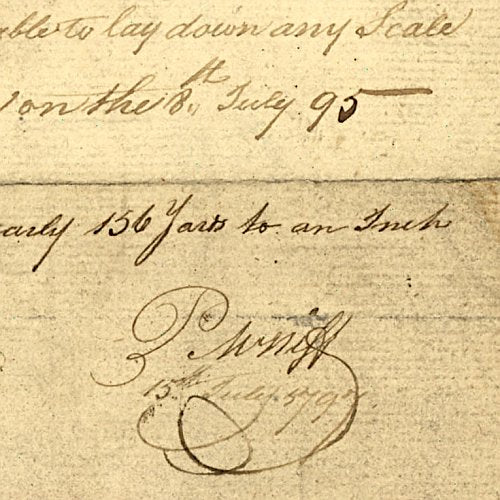 able to lay down any Scale
on the 8th July 95
early 156 Yards to an Inch
P McNiff
15th July 179